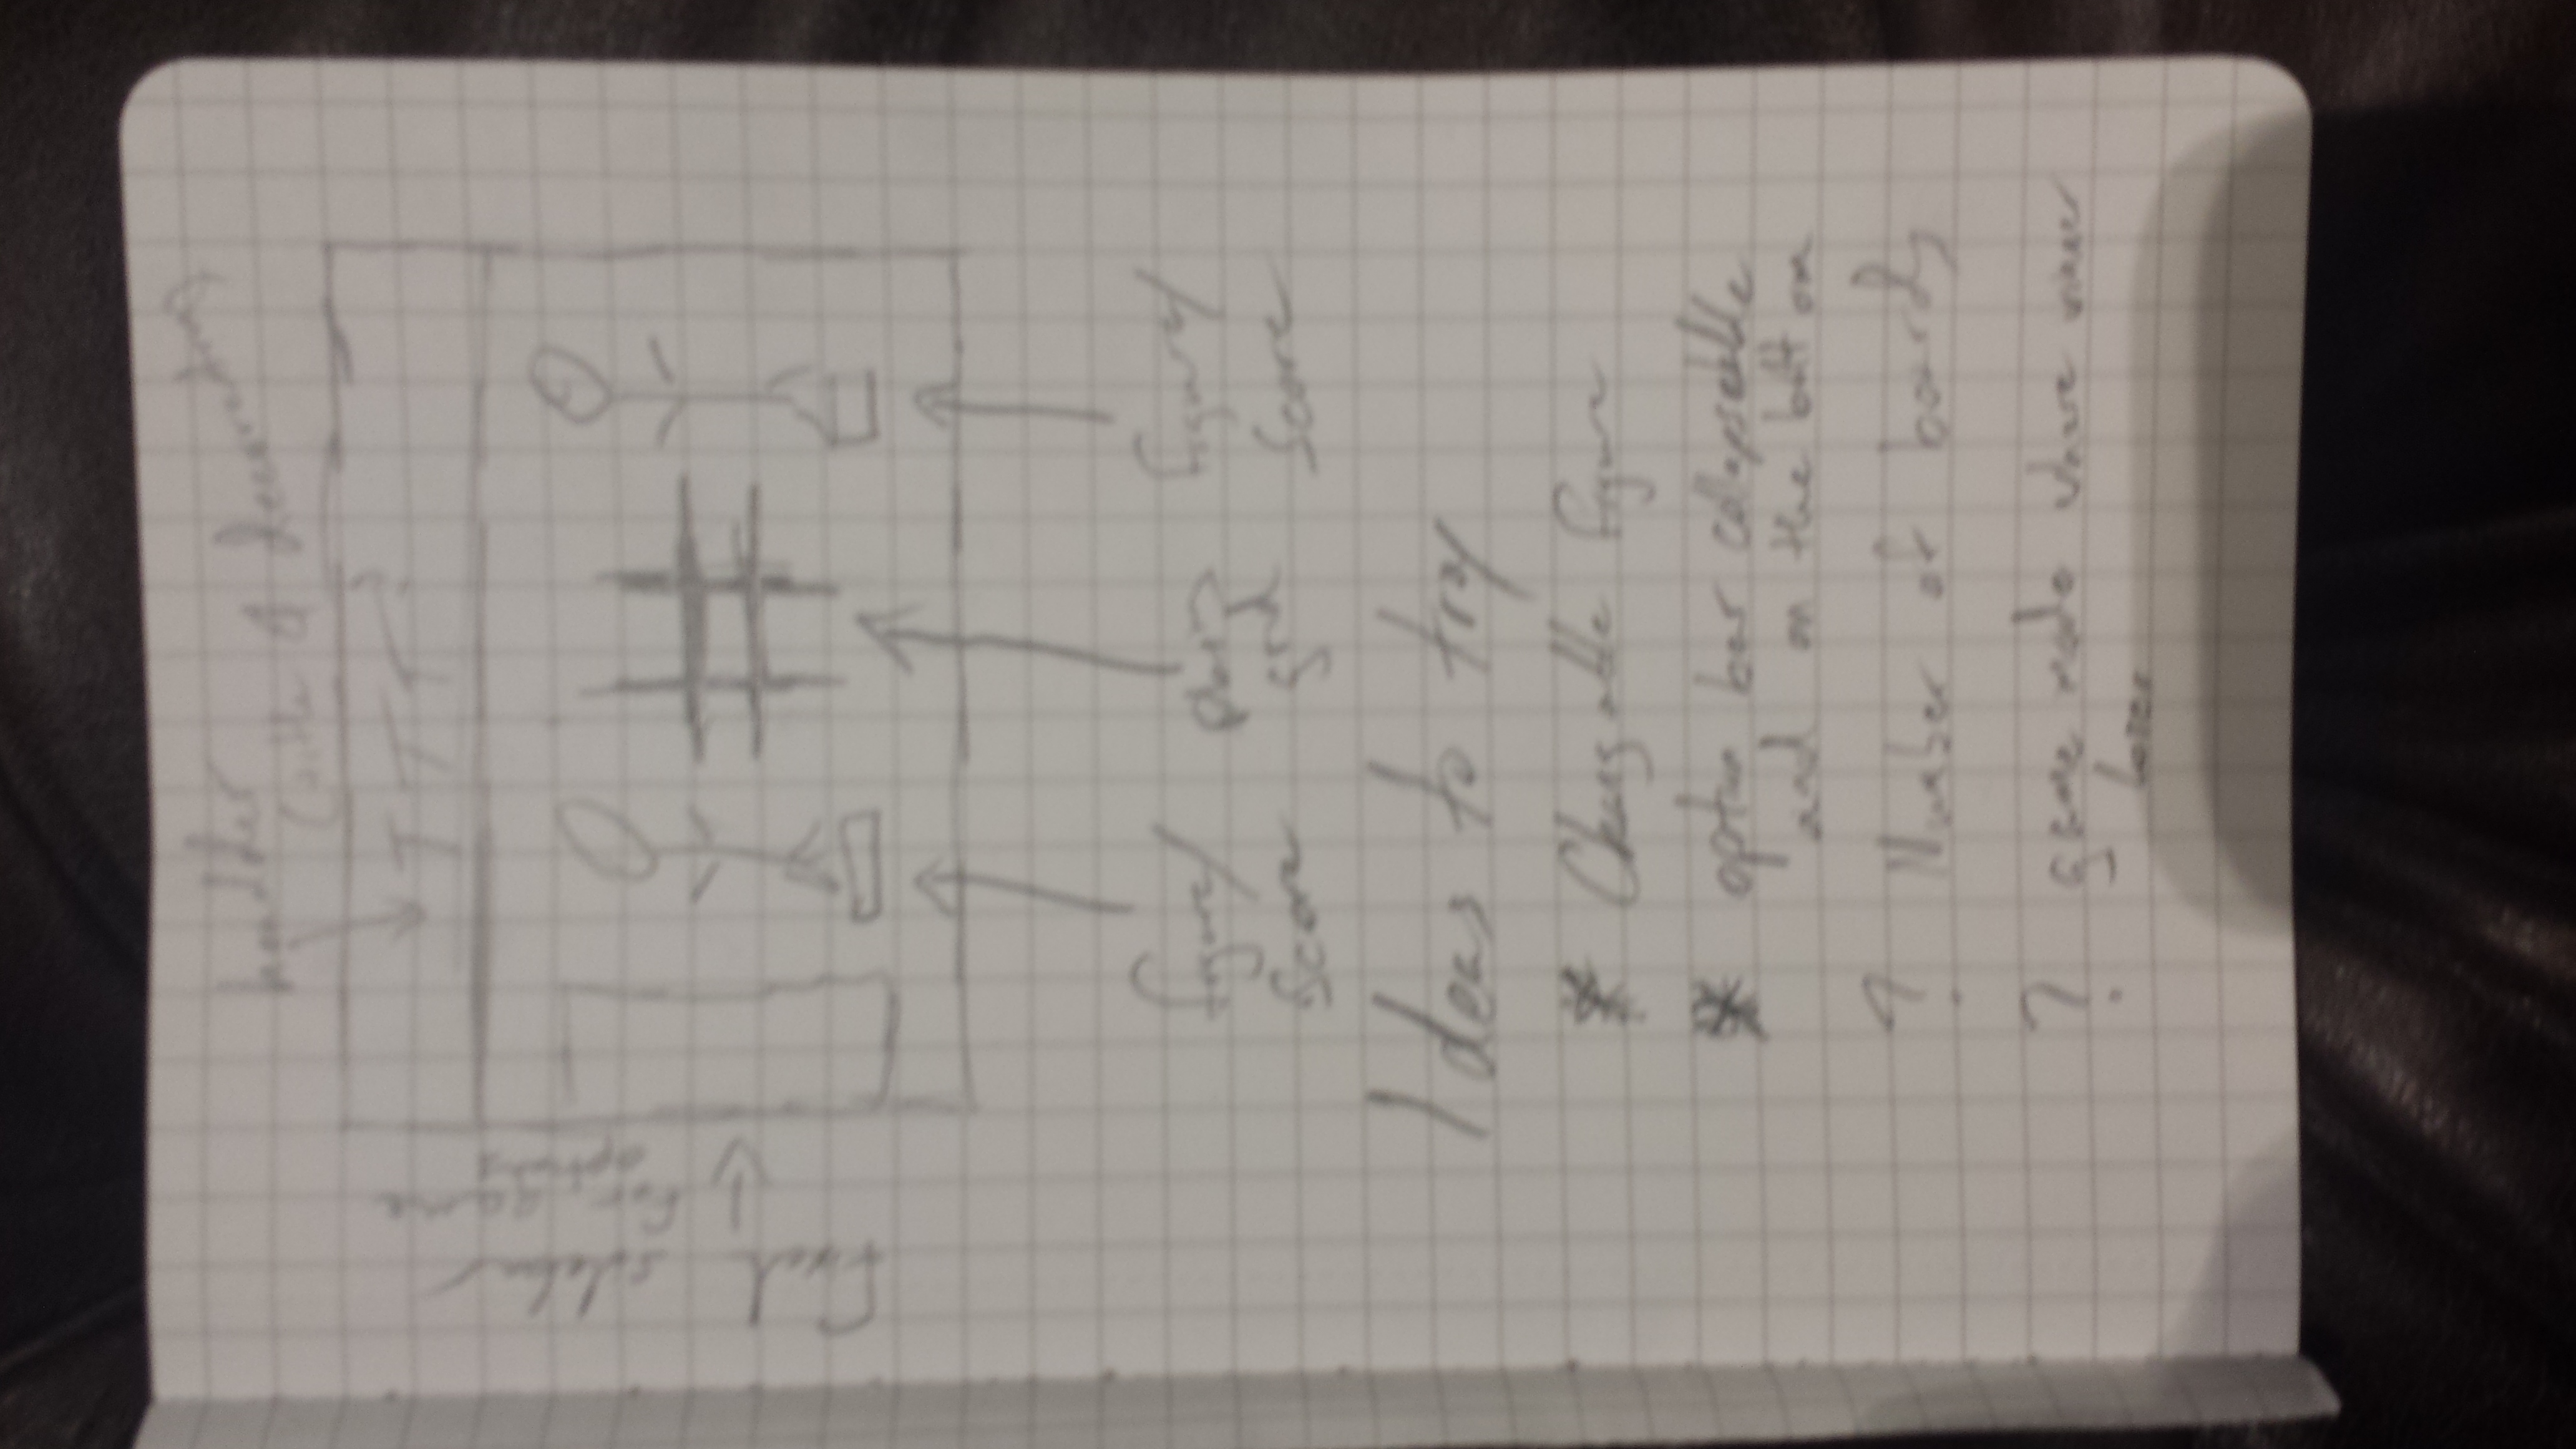 header
(with a decoration)
TTT
fixed
sidebar
for game
options
figure/
score
board
grid
figure/
score
Ideas to try
* Changable figure
* option bar collapsable
and on the bottom
? Number of boards
? game mode where winer
loses